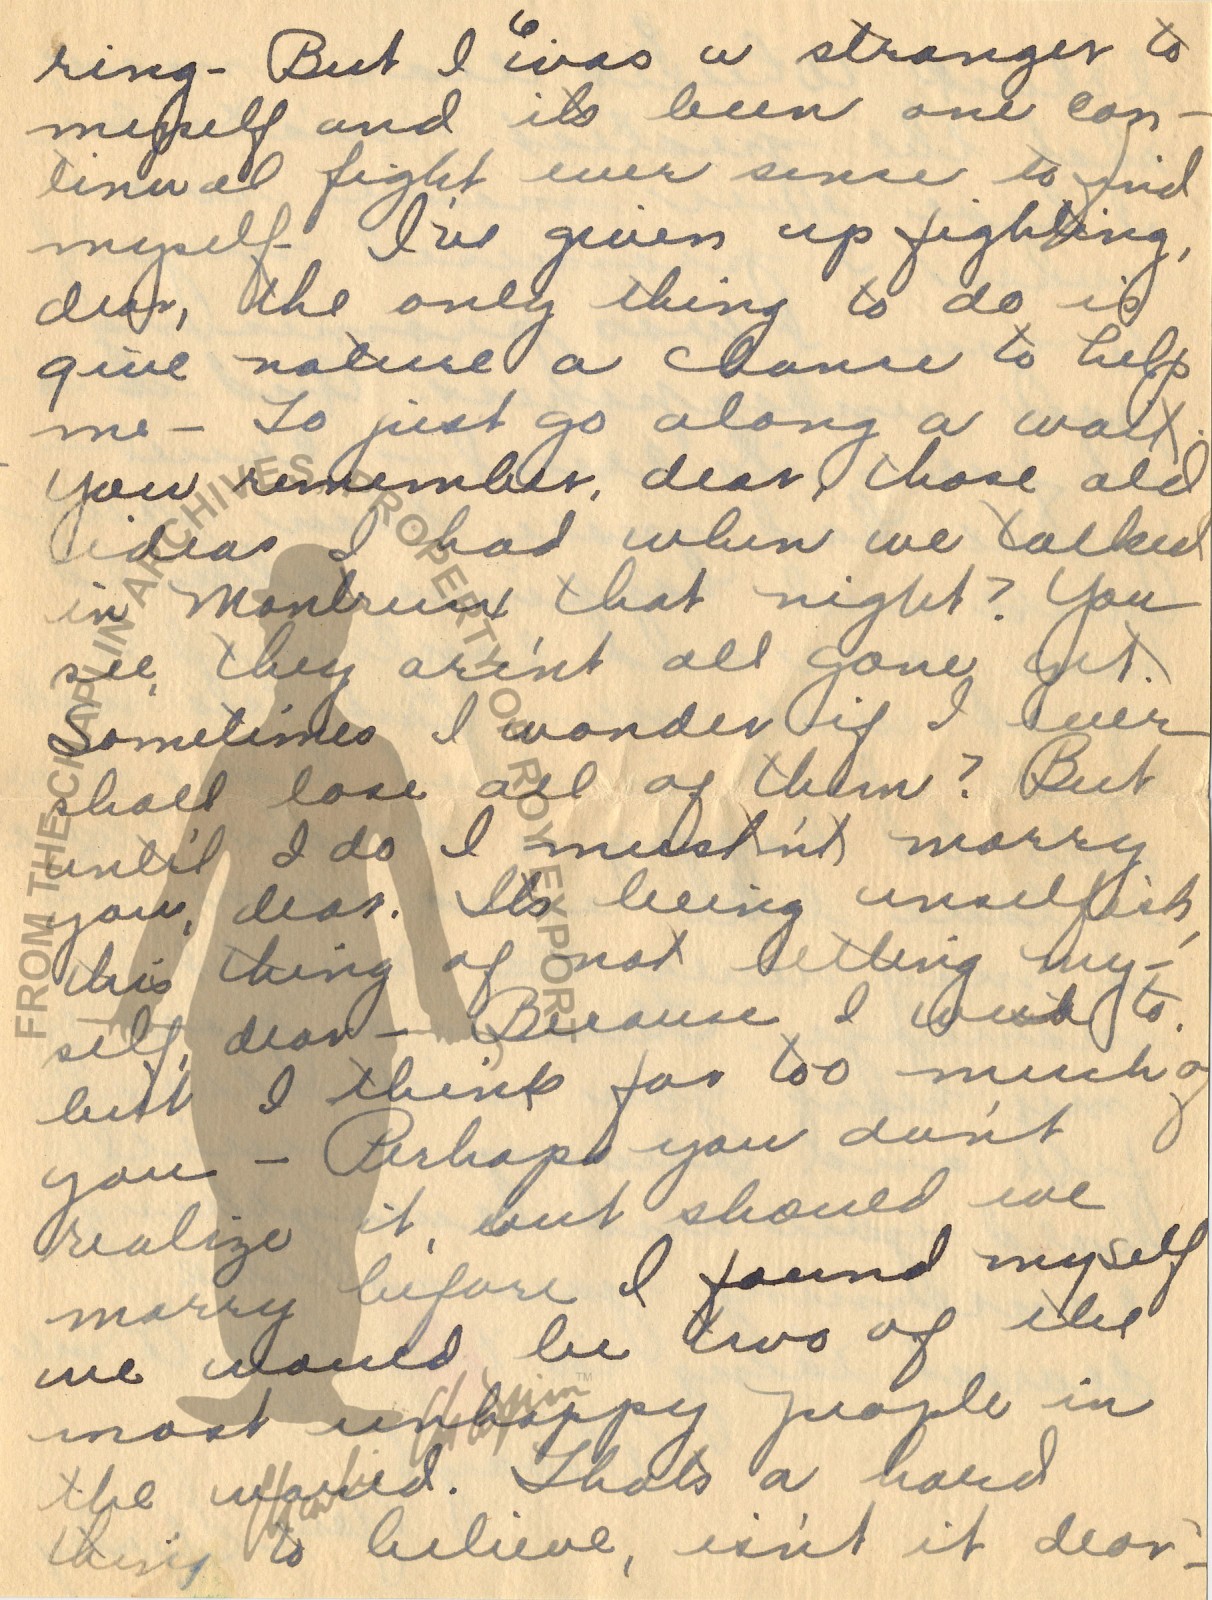 6
ring - But I was a stranger to
myself and its been one con-
tinual fight ever sense to find
myself - I've given up fighting,
dear, the only thing to do is
give nature a chance to help
me - To just go along a wait.
You remember, dear, those old
ideas I had when we talked
in Montreux that night? You
see, they are'nt all gone yet.
Sometimes I wonder if I ever
shall lose all of them? But
until I do I must'nt marry
you, dear. Its being unselfish,
this thing of not letting my-
self, dear - Because I want to.
but I think far too much of
you - Perhaps you don't
realize it, but should we
marry before I found myself
we would be two of the
most unhappy people in
the world. Thats a hard
thing to believe, isn't it dear -
FROM THE CHAPLIN ARCHIVES PROPERTY OF ROY EXPORT
Charlie Chaplin™